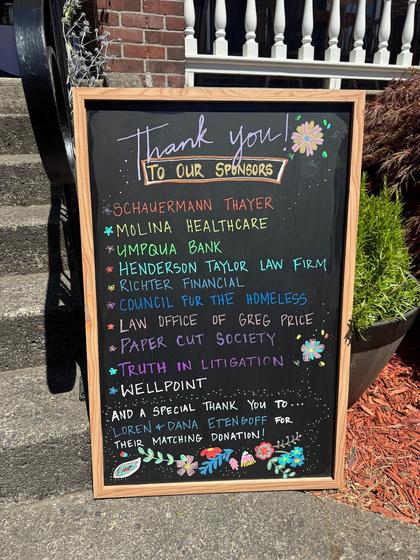 Thank you!
TO OUR SPONSORS
SCHAUERMANN THAYER
MOLINA HEALTHCARE
UMPQUA BANK
HENDERSON TAYLOR LAW FIRM
RICHTER FINANCIAL
COUNCIL FOR THE HOMELESS
LAW OFFICE OF GREG PRICE
PAPER CUT SOCIETY
TRUTH IN LITIGATION
WELLPOINT
AND A SPECIAL THANK YOU TO...
LOREN & DANA ETENGOFF FOR
THEIR MATCHING DONATION!